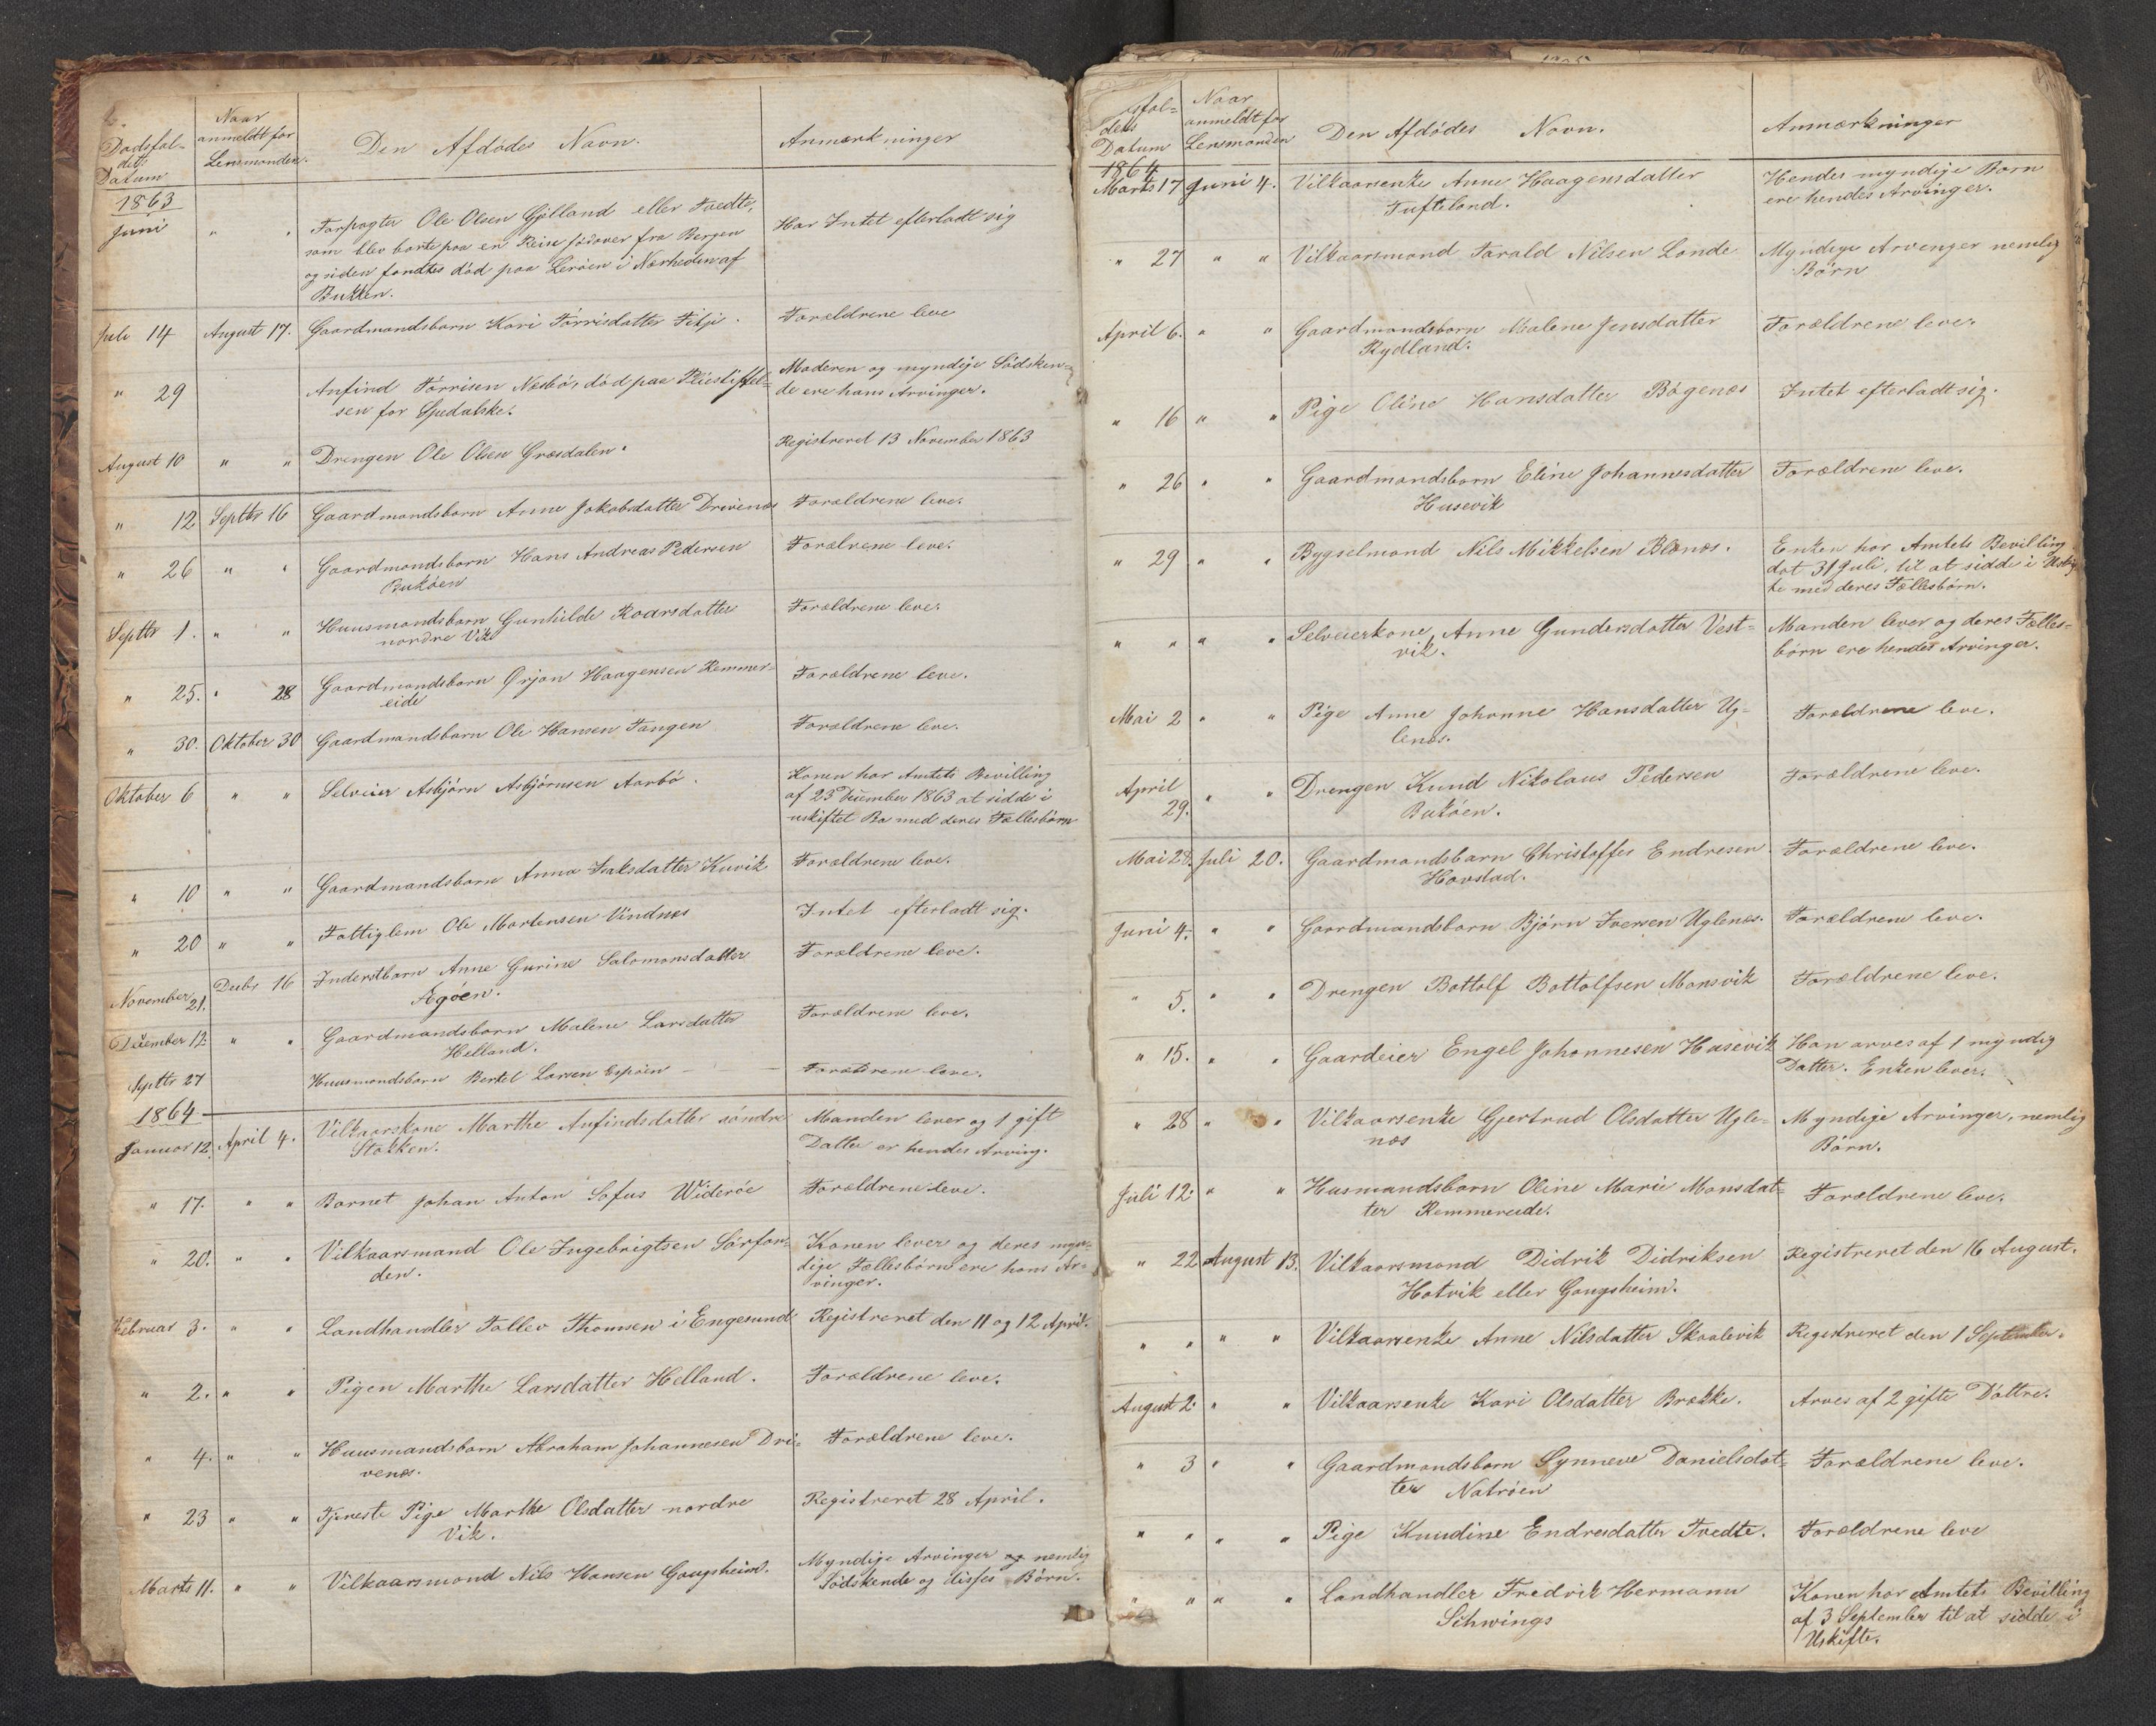 Dødsfal-
dets
Datum
Naar
anmeldt for
Lensmanden.
Den Afdødes Navn.
Anmærkninger
1863
Juni " " Forpagter Ole Olsen Gjilland eller Tvedte, Har Intet efterladt sig
som blev borte paa en Reise sødover fra Bergen
og siden fandtes død paa Lerøen i Nærheden af
Bukken.
Juli 14 August 17. Gaardmandsbarn Kari Tørrisdatter Fitje. Forældrene leve
" 29 Anfind Tørrisen Nesbø, død paa Pleiestiftel- Moderen og myndige Södsken-
sen for Spedalske. de ere hans Arvinger.
August 10 " " Drengen Ole Olsen Græsdalen. Registreret 13 November 1863
" 12 Septbr 16 Gaardmandsbarn Anne Jakobsdatter Drivenes Forældrene leve.
" 26 " " Gaardmandsbarn Hans Andreas Pedersen Forælrene leve.
Bukøen
Septbr 1. " " Huusmandsbarn Gunhilde Roarsdatter Forældrene leve.
nordre Vik
" 25. " 28 Gaardmandsbarn Ørjan Haagensen Remmer- Forældrene leve.
eide
" 30. Oktober 30 Gaardmandsbarn Ole Hansen Tangen Forældrene leve.
Oktober 6 " " Selveier Asbjørn Asbjørnsen Aarbø. Konen har Amtets Bevilling
af 23 December 1863 at sidde i
uskiftet Bo med deres Fællesbørn
" 10 " " Gaardmandsbarn Anna Isaksdatter Kuvik Forældrene leve.
" 20 " " Fattiglem Ole Martensen Vindnes Intet efterladt sig.
November 21. Decbr 16 Inderstbarn Anne Gurine Salomonsdatter Forældrene leve.
Ægøen.
December 12. " " Gaardmandsbarn Malene Larsdatter Forældrene leve.
Helland.
Septbr 27 Huusmandsbarn Bertel Larsen Espøen Forældrene leve.
1864
Januar 12. April 4. Vilkaarskone Marthe Anfindsdatter söndre Manden lever og 1 gift
Stokken. Datter er hendes Arving.
" 17. " " Barnet Johan Anton Sofus Widerøe Forældrene leve.
" 20. " " Vilkaarsmand Ole Ingebrigtsen Sörfon- Konen lever og deres myn-
den. dige Fællesbørn ere hans Ar-
vinger.
Februar 3. " " Landhandler Tollev Thomsen i Engesund Registreret den 11 og 12 April.
" 2. " " Pigen Marthe Larsdatter Helland. Forældrene leve.
" 4. " " Huusmandsbarn Abraham Johannesen Dri- Forældrene leve.
venes.
" 23 " " Tjeneste Pige Marthe Olsdatter nordre Registreret 28 April.
Vik.
Marts 11. " " Vilkaarsmand Nils Hansen Gaugsheim. Myndige Arvinger og nemlig
Södskende og disses Børn.
sfal-
dets
Datum
Naar
anmeldt for
Lensmanden
Den Afdödes Navn.
Anmærkninger
1864
Marts 17 Juni 4. Vilkaarsenke Anne Haagensdatter Hendes myndige Børn
Tufteland. ere hendes Arvinger.
" 27 " " Vilkaarsmand Tarald Nilsen Lande Myndige Arvenger nemlig
Börn
April 6. " " Gaardmandsbarn Malene Jensdatter Forældrene leve.
Rydland.
" 16 " " Pige Oline Hansdatter Bøgenæs Intet efterladt sig.
" 26 " " Gaardmandsbarn Eline Johannesdatter Forældrene leve.
Husevik
" 29 " " Bygselmand Nils Mikkelsen Blænæs. Enken har Amtets Bevilling
dat 31 Juli, til at sidde i Uskif
te med deres Fællesbørn.
" " " " Selveierkone Anne Gundersdatter Vest- Manden lever og deres Fælles-
vik. børn ere hendes Arvinger.
Mai 2 " " Pige Anne Johanne Hansdatter Ug- Forældrene leve.
lenæs.
April
29. " " Drengen Knud Nikolaus Pedersen Forældrene leve.
Bukøen.
Mai 28. Juli 20. Gaardmandsbarn Christoffer Endresen Forældrene leve.
Havstad.
Juni 4. " " Gaardmandsbarn Bjørn Iversen Uglenæs. Forældrene leve.
" 5. " " Drengen Bottolf Bottolfsen Monsvik Forældrene leve.
" 15. " " Gaardeier Engel Johannesen Husevik Han arves af 1 myndig
Datter. Enken lever.
" 28 " " Vilkaarsenke Gjertrud Olsdatter Ugle- Myndige Arvinger, nemlig
næs Börn.
Juli 12. " " Husmandsbarn Oline Marie Monsdat- Forældrene leve.
ter Remmereide.
" 22 August 13. Vilkaarsmand Didrik Didriksen Registreret den 16 August.
Hatvik eller Gaugsheim.
" " " " Vilkaarsenke Anne Nilsdatter Skaalevik Registreret den 1 September.
August 2. " " Vilkaarsenke Kari Olsdatter Brække. Arves af 2 gifte Döttre.
" 3 " " Gaardmandsbarn Synneve Danielsdat- Forældrene leve.
ter Natröen
" " " " Pige Knudine Endresdatter Tvedte. Forældrene leve
" " " " Landhandler Fredrik Hermann Konen har Amtets Bevilling
Schwings af 3 September til at sidde i
Uskifte.